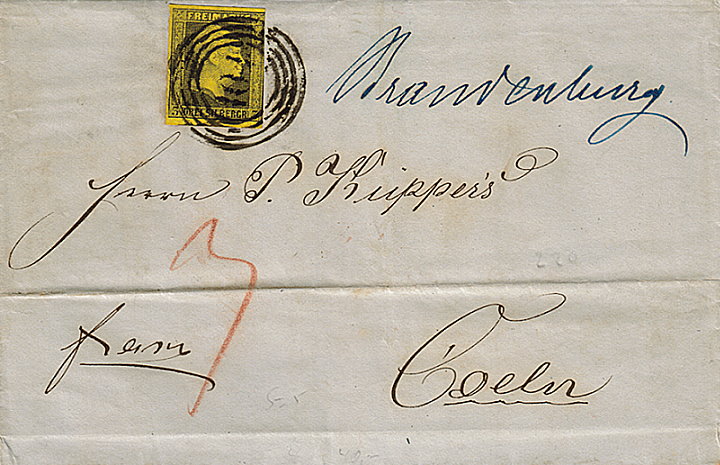 FREIMARKE
3 SILBERGR.
Brandenburg
Herrn P. Küppers
3
franco
Coeln